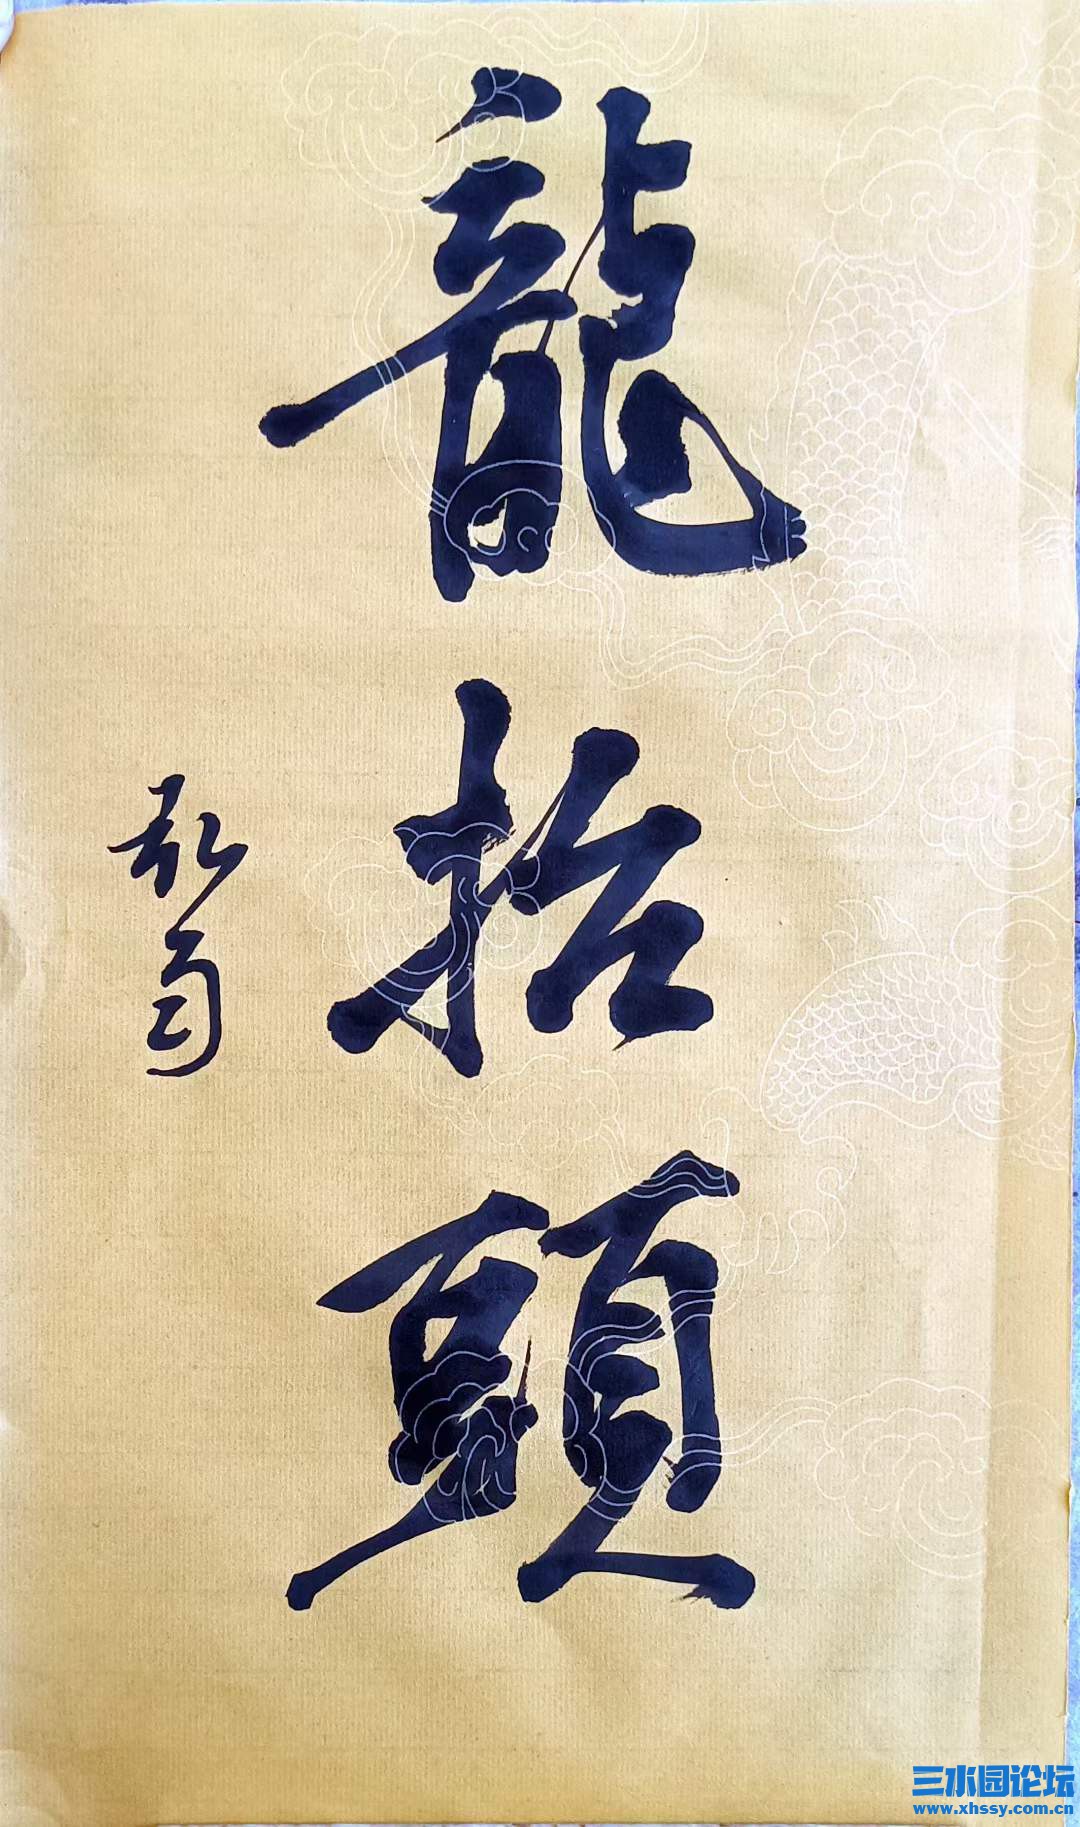 龍抬頭
三水园论坛
www.xhssy.com.cn